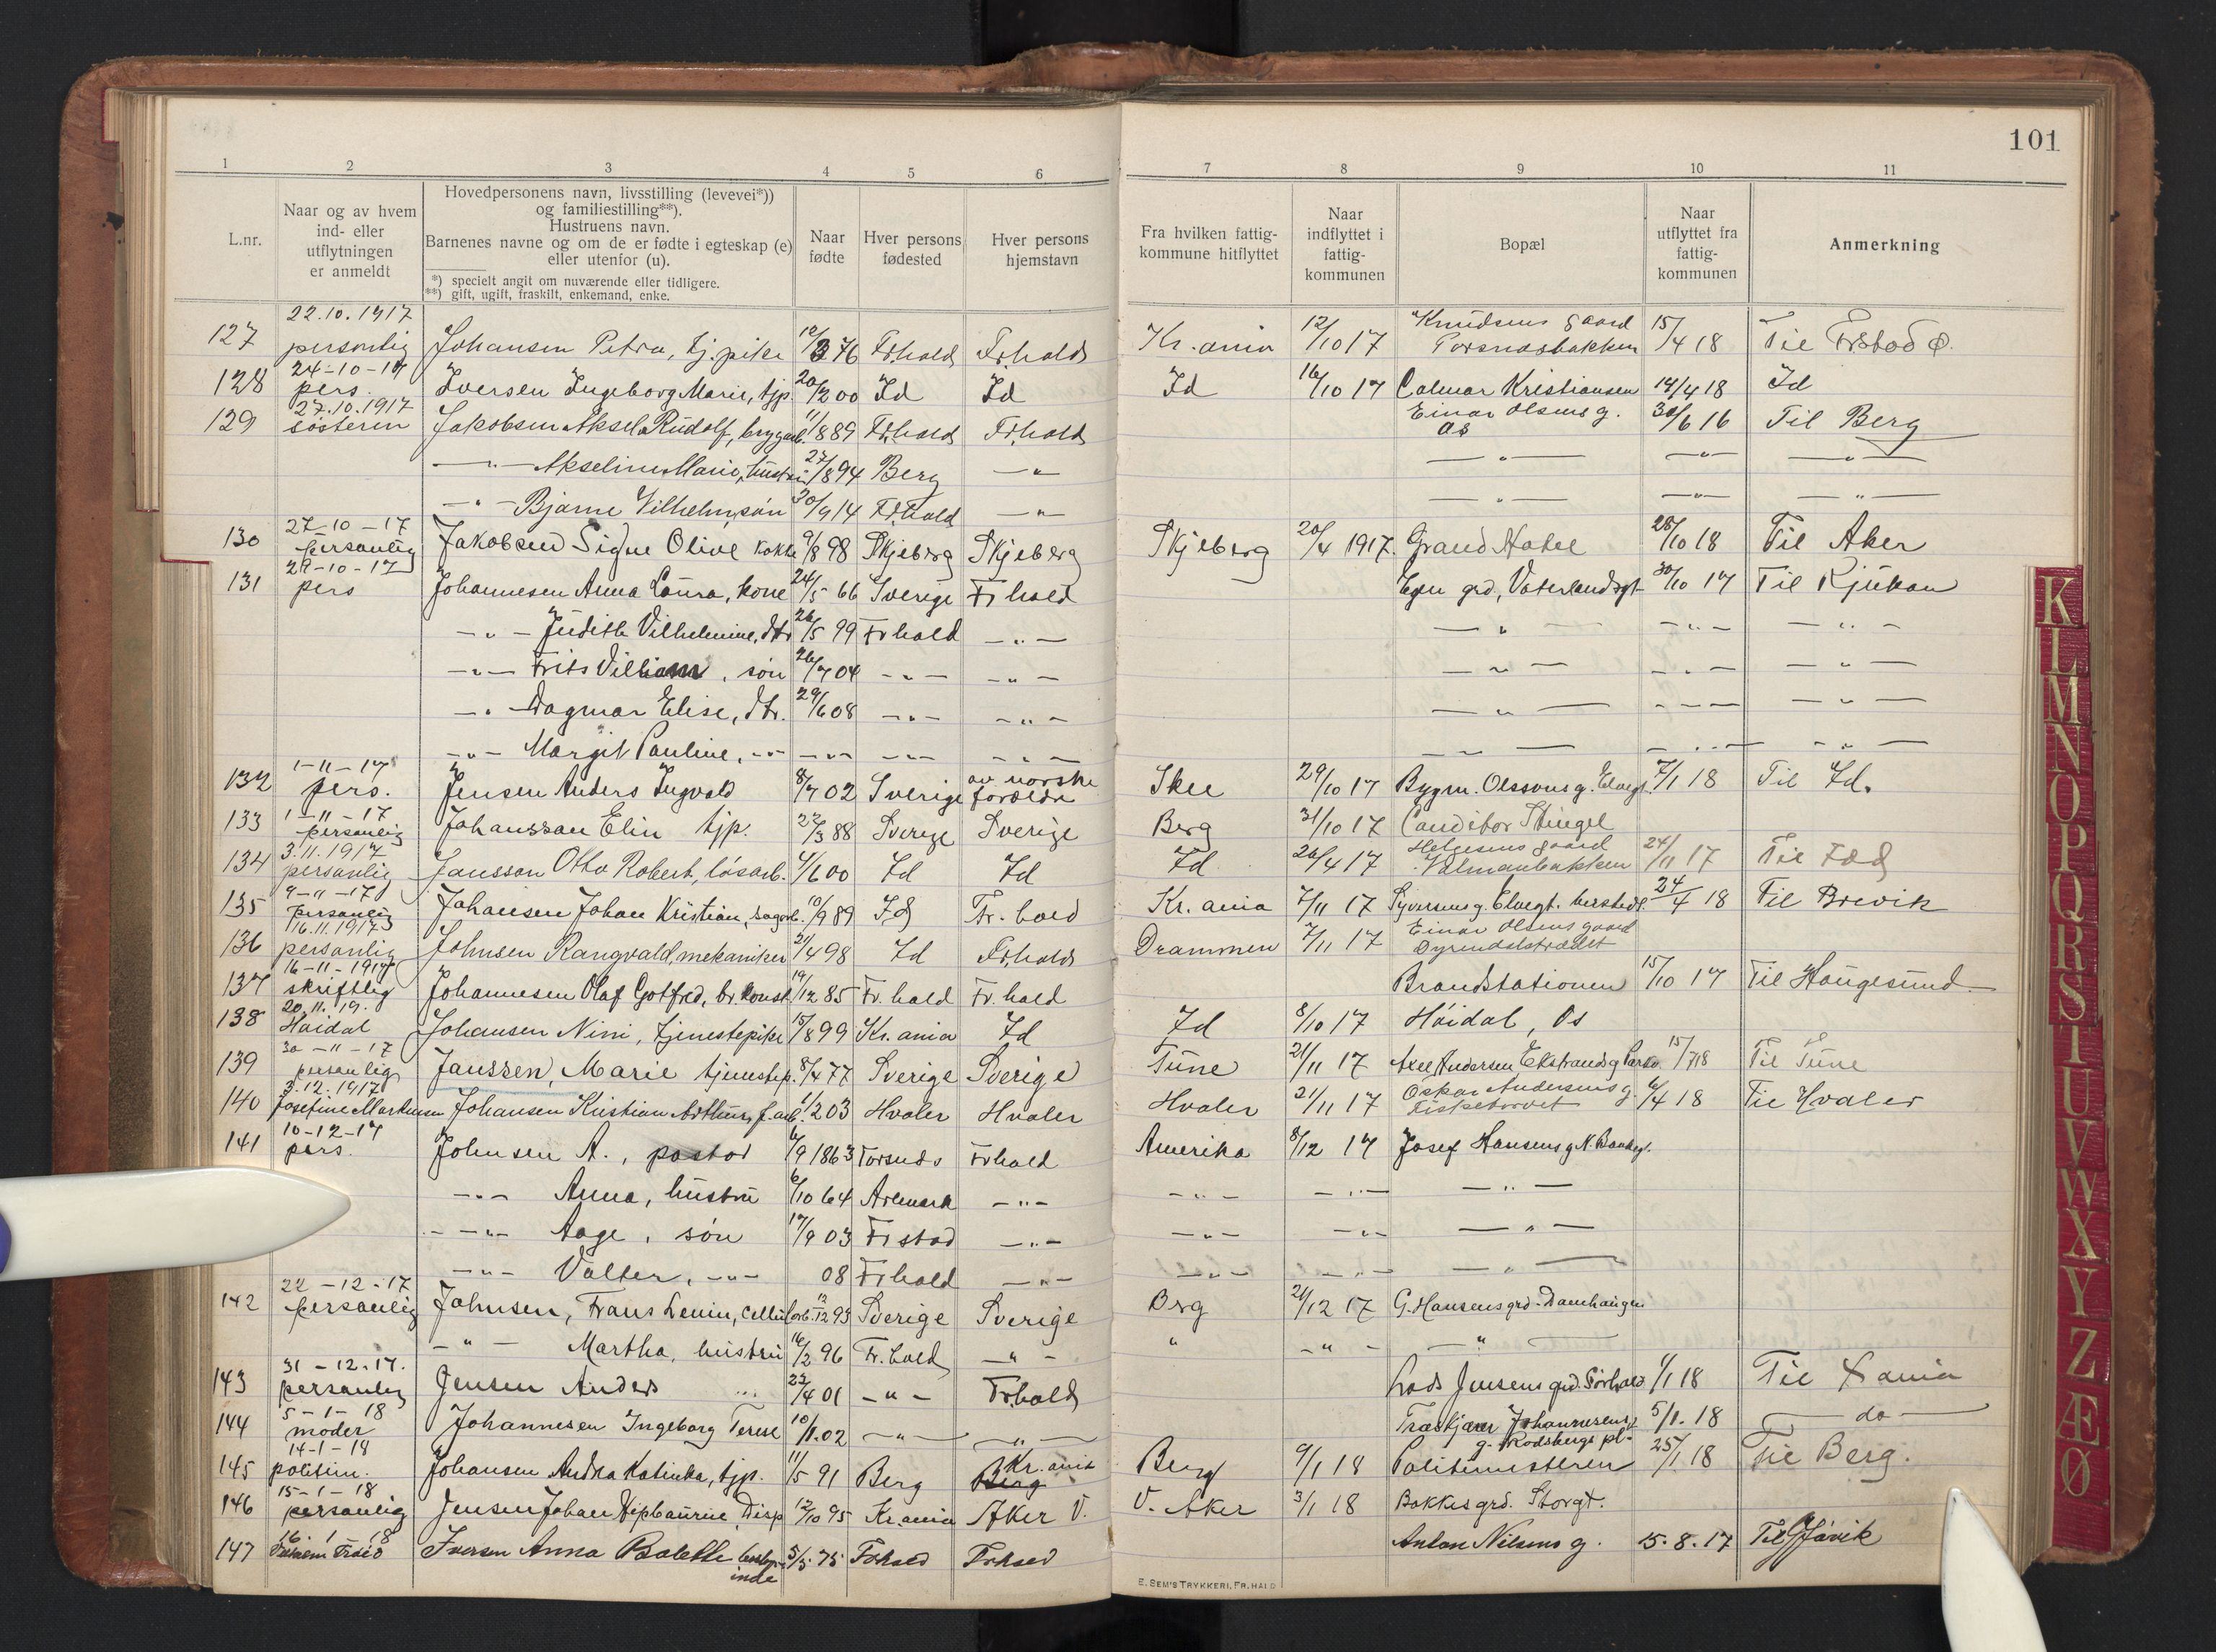 101
1 2 3 4 5 6 7 8 9 10 11
L.nr.
Naar og av hvem
ind- eller
utflytningen
er anmeldt
Hovedpersonens navn, livsstilling (levevei*))
og familiestilling**).
Hustruens navn.
Barnenes navne og om de er fødte i egteskap (e)
eller utenfor (u).
*) specielt angit om nuværende eller tidligere.
**) gift, ugift, fraskilt, enkemand, enke.
Naar
fødte
Hver persons
fødested
Hver persons
hjemstavn
Fra hvilken fattig-
kommune hitflyttet
Naar
indflyttet i
fattig-
kommunen
Bopæl
Naar
utflyttet fra
fattig-
kommunen
Anmerkning
22.10.1917 Knudsens gaard
127 personlig Johansen Petra, tj. pike Fr.hald Fr.hald Kr.ania 12/10 17 15/4 18
24-10-17
128 pers. Iversen Ingeborg Marie, tjp. 20/2 00 Id Id Id 16/10 17 Calmar Kristiansen 14/4 18 Id
27.10.1917 Einar Olsens g.
129 søsteren Jakobsen Rudolf, 11/8 89 Fr.hald Fr.hald Os 30/6 16 Til Berg
—"— Akseline Marie, hustru 27/8 94 Berg —"— —"— —"— —"—
—"— Bjarne Vilhelm, søn 30/9 14 Fr.hald —"— —"— —"— —"—
27-10-17
130 personlig Jakobsen Signe Olive kokke 9/8 98 Skjeberg Skjeberg Skjeberg 20/4 1917. Grand Hotel 28/10 18 Til Aker
29-10-17
131 pers Johannesen Anna Laura, kone 24/5 66 Sverige Fr hald Egen grd, Vaterlandsgt 30/10 17 Til Rjukan
—"— Judith Vilhelmine, dtr 26/5 99 Fr hald —"— —"— —"— —"—
—"— Frits William, søn 26/7 04 —"— —"— —"— —"— —"—
—"— Dagmar Elise, dtr. 29/6 08 —"— —"— —"— —"— —"—
—"— Margit Pauline, —"— —"— —"— —"— —"— —"— —"—
1-11-17 av norske
132 pers. Jensen Anders Ingvald 8/7 02 Sverige forældre Skee 29/10 17 Bygm. Olssons g. Elvegt. 7/1 18 Til Id.
1-11-17
133 personlig Johansson Elin tjp. 27/3 88 Sverige Sverige Berg 31/10 17 Conditor Stingel
3.11.1917 Helgesens gaard
134 personlig Jansson Otto Robert, løsarb. 4/6 00 Id Id Id 26/4 17 24/11 17
9-11-17
135 personlig Johansen Johan Kristian, 10/9 89 Id Fr. hald Kr.ania 7/11 17 24/4 18 Til Brevik
16.11.1917 Einar Olsens gaard
136 personlig Johnsen Rangvald, mekaniker 21/4 98 Id Fr.hald Drammen 7/11 17 Dyrendalstrædet
16-11-1917
137 skriftlig Johannesen Olaf Gotfred, br.konst. 19/12 85 Fr. hald Fr. hald Brandstationen 15/10 17 Til Haugesund
20.11.19.
138 Høidal Johansen Nini, tjenestepike 15/8 99 Kr.ania Id Id 8/10 17 Høidal, Os
30-11-17
139 personlig Janssen, Marie tjenestep. 8/4 77 Sverige Sverige Tune 21/11 17 Axel Andersen Ekstrands g 15/7 18 Til Tune
3.12.1917 Oskar Andersens g.
140 Josefine Markusen Johansen Kristian Arthur, 1/2 03 Hvaler Hvaler Hvaler 21/11 17 Fisketorvet 6/4 18 Til Hvaler
10-12-17
141 pers. Johnsen A., pastor 6/9 1863 Fr hald Amerika 8/12 17 Josef Hansens g N. Bankegt.
—"— Anna, hustru 6/10 64 Aremark —"— —"— —"— —"—
—"— Aage, søn 17/9 03 Fr stad —"— —"— —"— —"—
—"— Valter, —"— 08 Fr hald —"— —"— —"— —"—
22-12-17
142 personlig Johnsen, Frans Lenin, 12/12 93 Sverige Sverige Berg 21/12 17 G. Hansens grd. Damhaugen
—"— Martha, hustru 16/2 96 Fr. hald —"— " —"— —"—
31-12-17.
143 personlig Jensen Anders 22/4 01 —"— Fr.hald Lods Jensens grd. Sørhald. 1/1 18 Til Kr.ania
5-1-18
144 moder Johannesen Ingeborg Terese 10/1.02 —"— —"— Johannesens 5/1.18 —do—
14-1-18 g. Rødsbergs pl.
145 politim. Johansen Andra Katinka, tjp. 11/5 91 Berg Kr.ania Berg Berg 9/1 18 Politimesteren 25/1 18 Til Berg.
15-1-18
146 personlig Jensen Johan Disp 12/10 95 Kr.ania Aker V. V. Aker 3/1 18 Bakkes grd. Storgt.
16.1 18
147 Iversen Anna Bolette 5/5.75 Frhald Frhald Anton Nilsens g. 15.8.17 Til Gjøvik
inde
E. SEM'S TRYKKERI, FR.HALD
K
L
M
N
O
P
Q
R
S
T
U
V
W
X
Y
Z
Æ
Ø